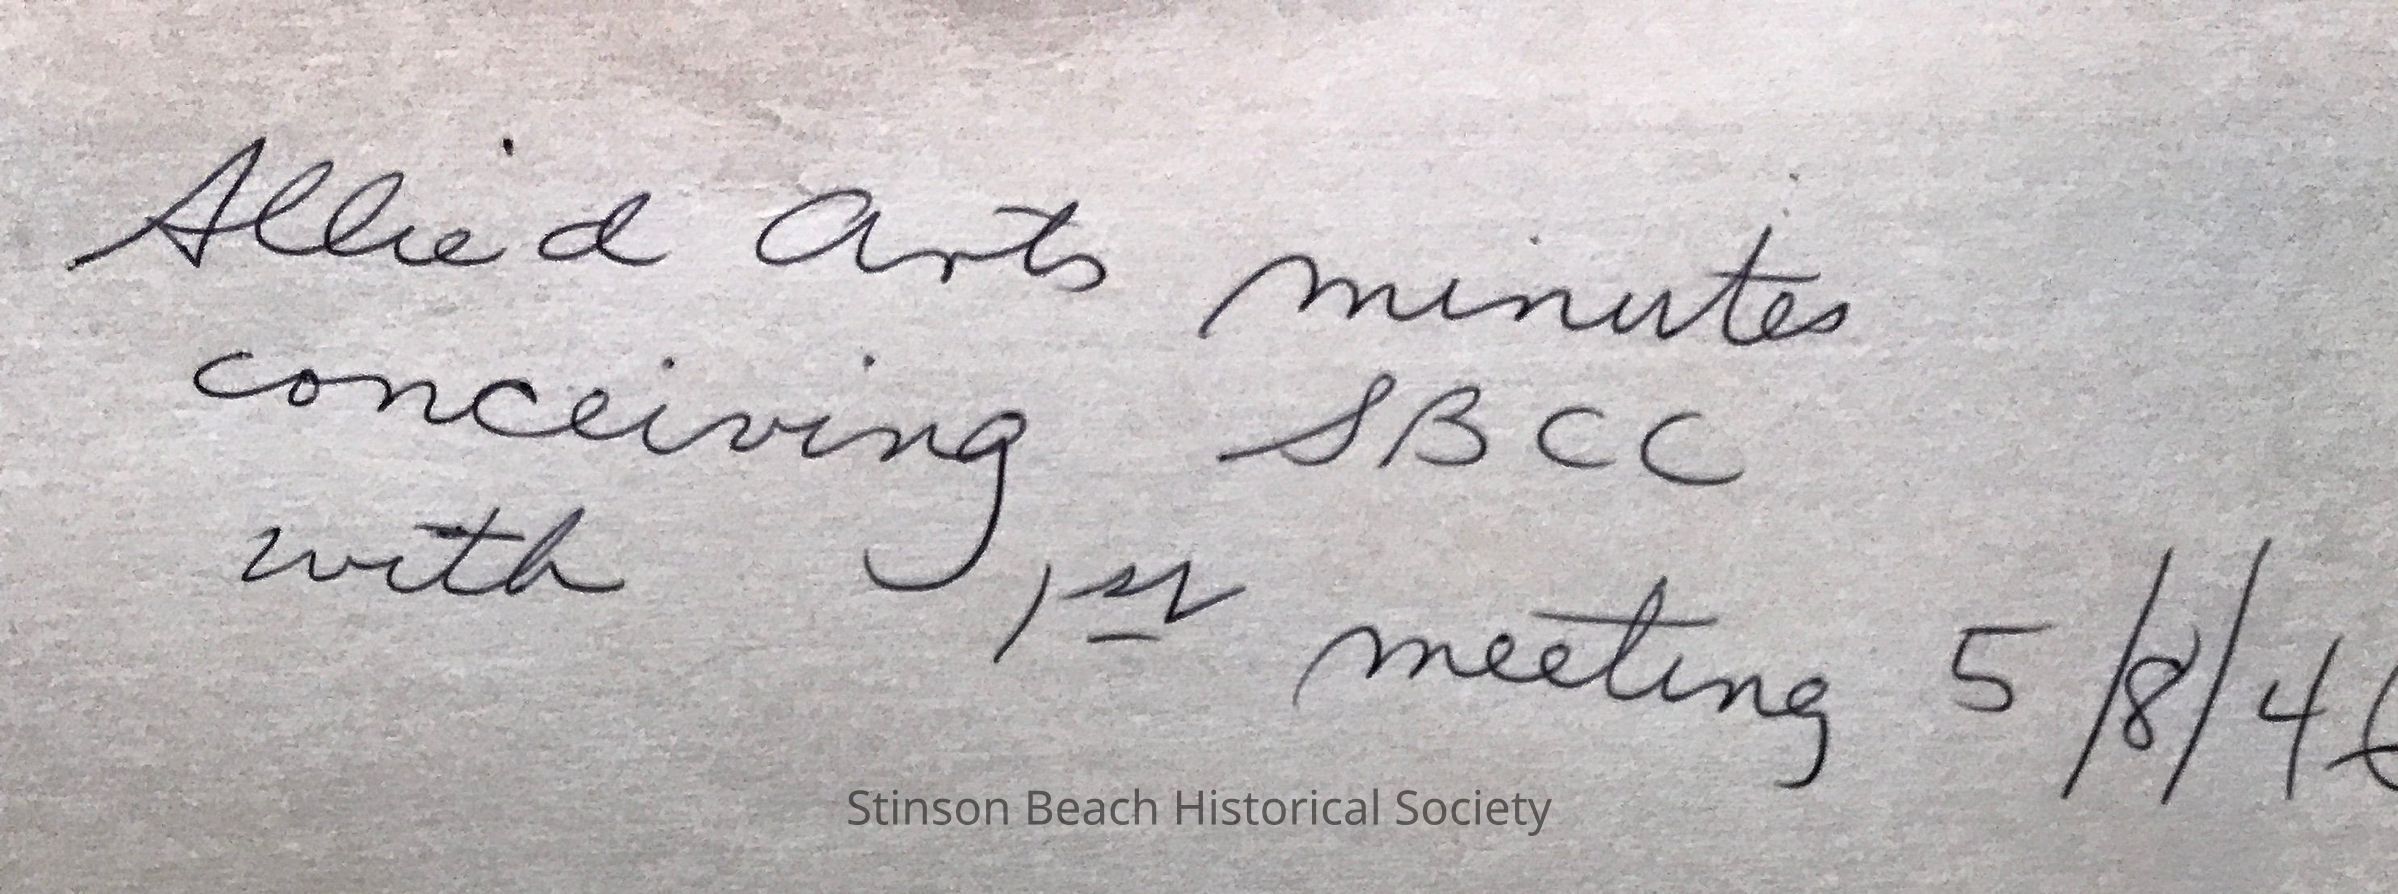 Allied Arts minutes
conceiving SBCC
with 1st meeting 5/8/46
Stinson Beach Historical Society